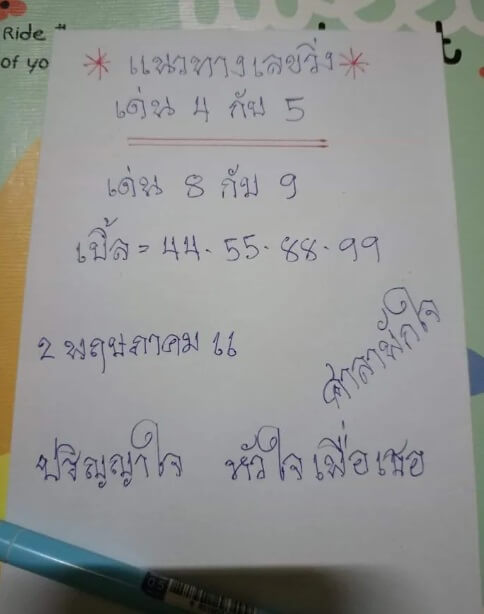 Ride
of yo
* แนวทางเลขวิ่ง *
เด่น 4 กับ 5
เด่น 8 กับ 9
เบิ้ล = 44. 55. 88. 99
2 พฤษภาคม 66
ศาลาพักใจ
ปริญญาใจ หัวใจเพื่อเธอ
0.5